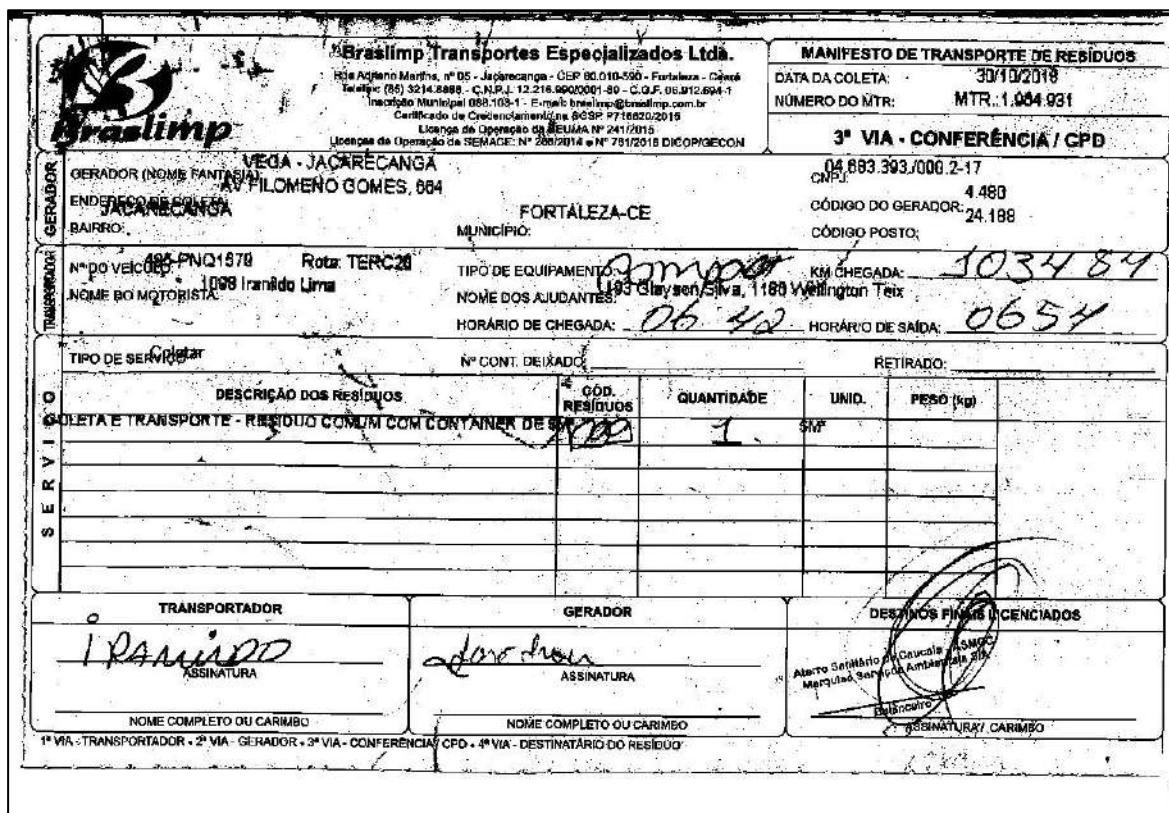 Braslimp
Braslimp Transportes Especializados Ltda.
Rua Adriano Martins, nº 05 - Jacarecanga - CEP 60.010-590 - Fortaleza - Ceará
Telefax: (85) 3214.8888 - C.N.P.J. 12.216.990/0001-89 - C.G.F. 06.912.694-1
Inscrição Municipal 088.103-1 - E-mail: braslimp@braslimp.com.br
Certificado de Credenciamento na SCSP. P716620/2015
Licença de Operação da SEUMA Nº 241/2015
Licenças de Operação da SEMACE: Nº 266/2014 e Nº 781/2016 DICOP/GECON
MANIFESTO DE TRANSPORTE DE RESÍDUOS
DATA DA COLETA: 30/10/2018
NÚMERO DO MTR: MTR.:1.054.931
3ª VIA - CONFERÊNCIA / CPD
GERADOR
GERADOR (NOME FANTASIA): VEGA - JACARECANGA
CNPJ: 04.683.393./000.2-17
ENDEREÇO DE COLETA: AV FILOMENO GOMES, 664
CÓDIGO DO GERADOR: 4.480
BAIRRO: JACARECANGA
MUNICÍPIO: FORTALEZA-CE
CÓDIGO POSTO: 24.188
TRANSPORTADOR
Nº DO VEÍCULO: PNQ1579 Rota: TERC28
TIPO DE EQUIPAMENTO:
KM CHEGADA: 103484
NOME DO MOTORISTA: 1098 Iranildo Lima
NOME DOS AJUDANTES: Glayson Silva, 1180 Wellington Teix
HORÁRIO DE CHEGADA: 06 42
HORÁRIO DE SAÍDA: 0654
SERVIÇO
TIPO DE SERVIÇO: Coletar
Nº CONT. DEIXADO:
RETIRADO:
DESCRIÇÃO DOS RESÍDUOS CÓD. RESÍDUOS QUANTIDADE UNID. PESO (kg)
COLETA E TRANSPORTE - RESÍDUO COMUM COM CONTAINER DE 5M³ 1 5M³
TRANSPORTADOR
IRANILDO
ASSINATURA
NOME COMPLETO OU CARIMBO
GERADOR
ASSINATURA
NOME COMPLETO OU CARIMBO
DESTINOS FINAIS LICENCIADOS
Aterro Sanitário de Caucaia - ASMOC
Marquise Serviços Ambientais S/A
Balanceiro
ASSINATURA / CARIMBO
1ª VIA - TRANSPORTADOR • 2ª VIA - GERADOR • 3ª VIA - CONFERÊNCIA / CPD • 4ª VIA - DESTINATÁRIO DO RESÍDUO